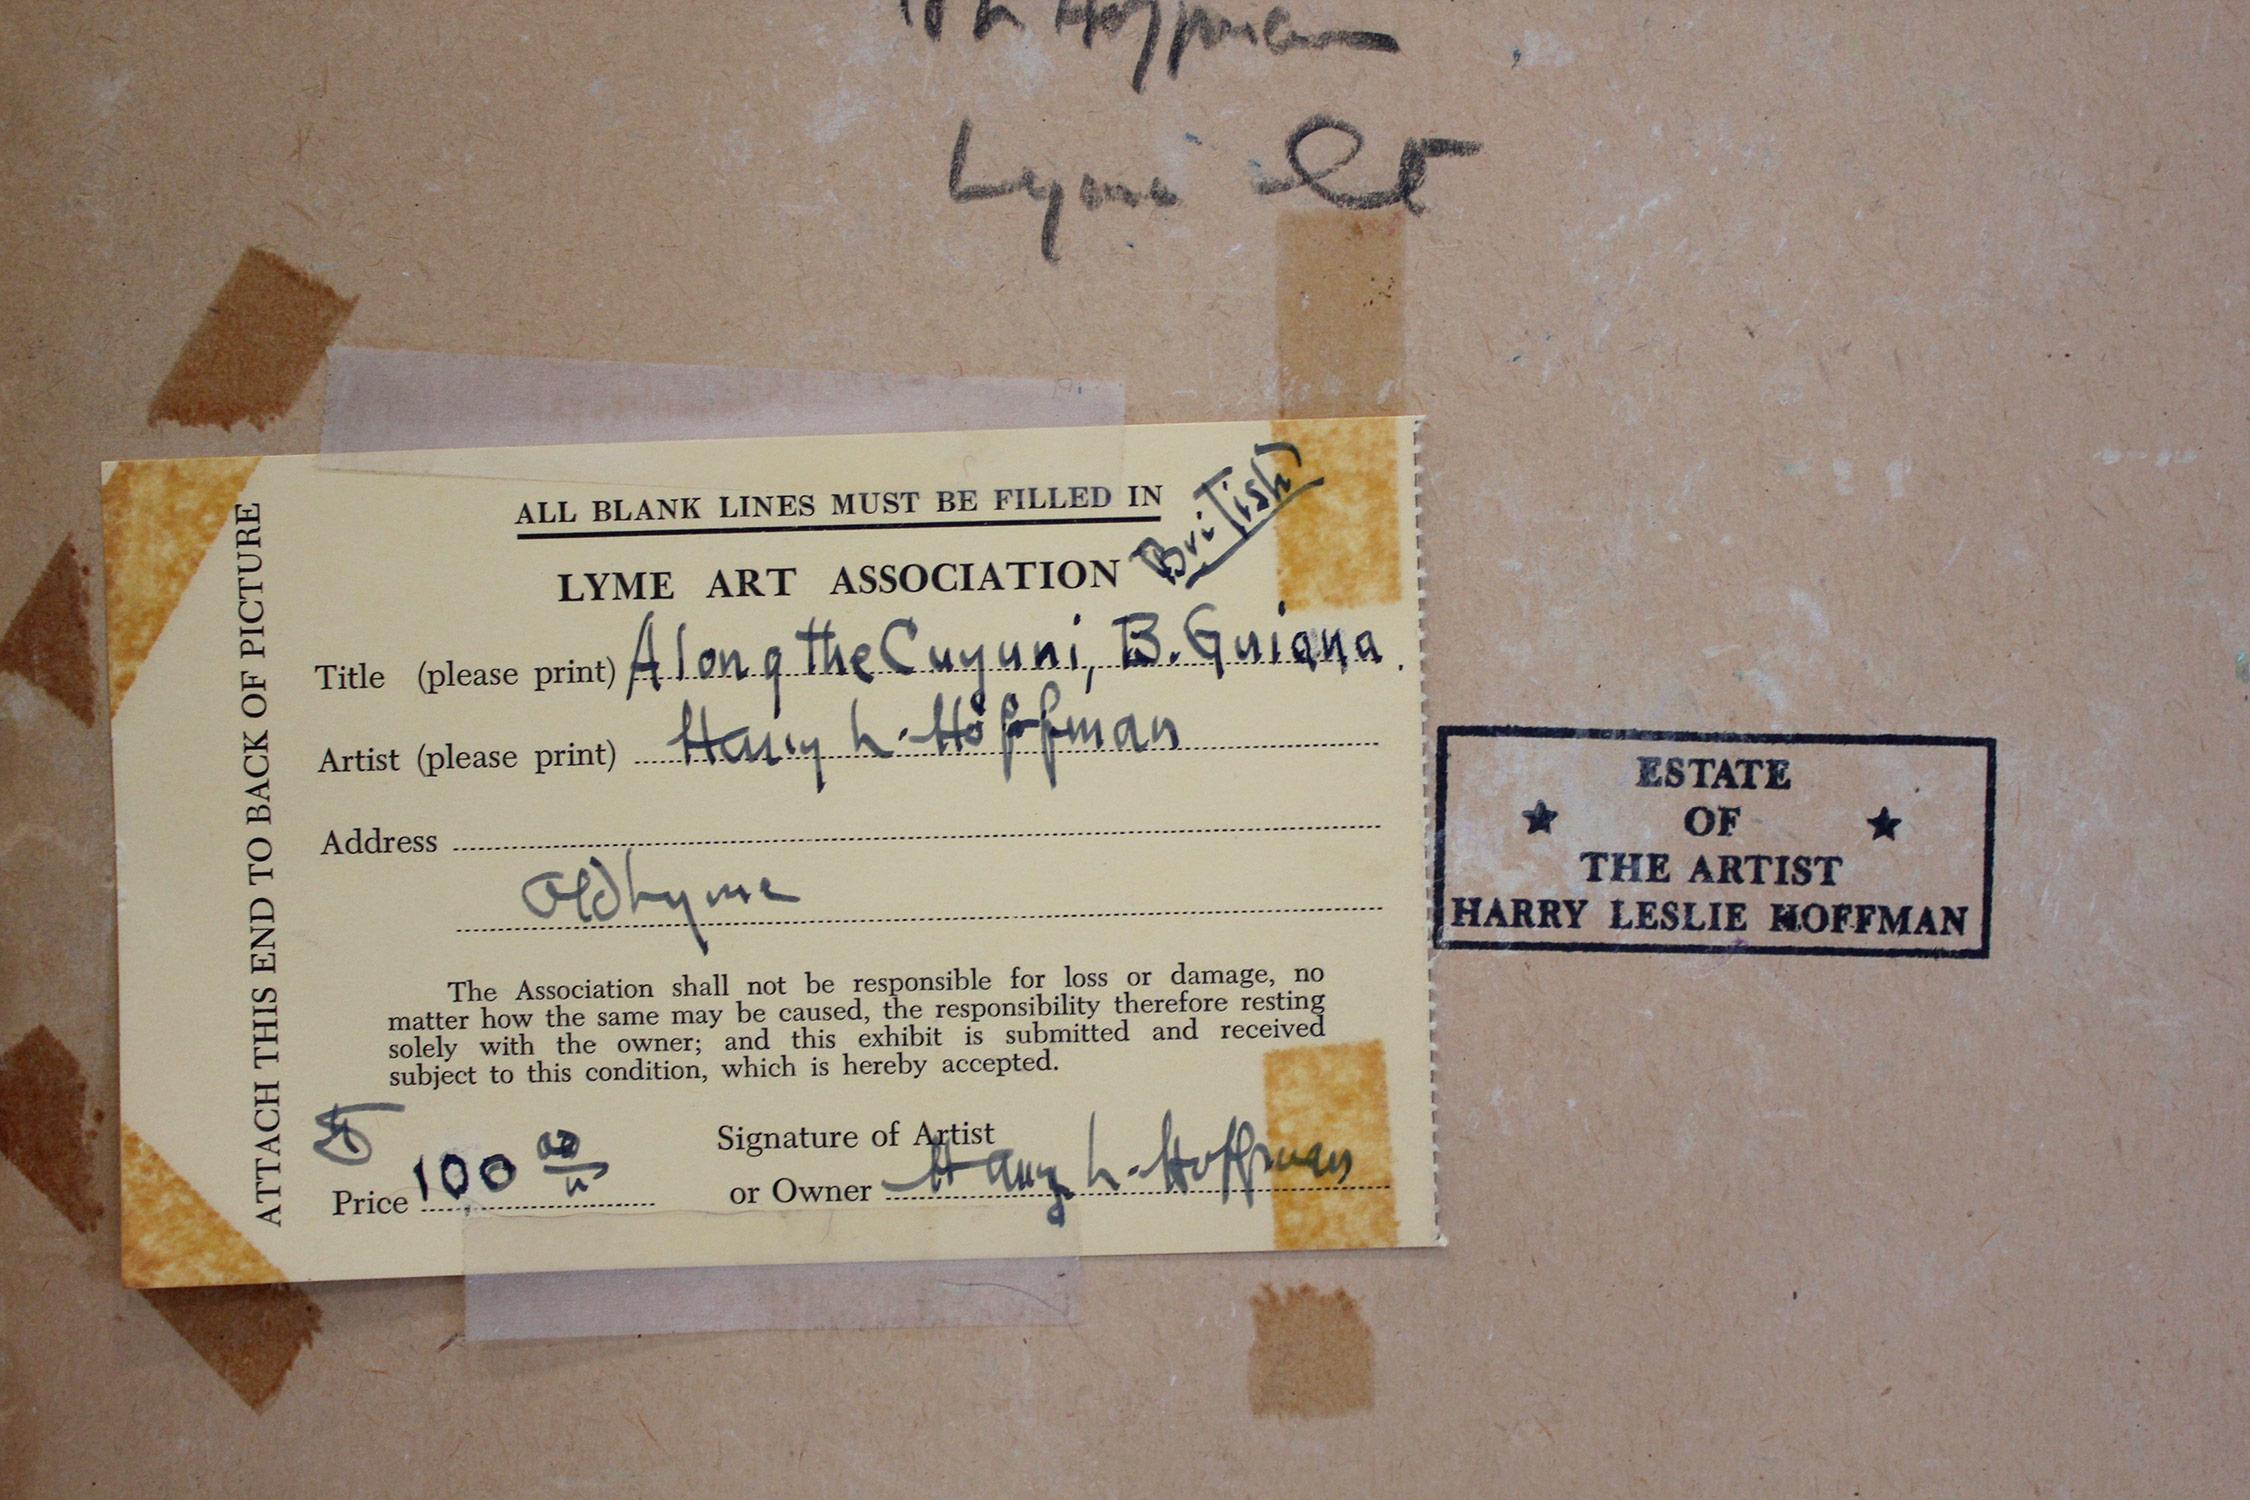 Hoffman
Lyme
ATTACH THIS END TO BACK OF PICTURE
ALL BLANK LINES MUST BE FILLED IN
British
LYME ART ASSOCIATION
Title (please print) Along the Cuyuni, B. Guiana.
Artist (please print) Harry L. Hoffman
Address
Old Lyme
The Association shall not be responsible for loss or damage, no
matter how the same may be caused, the responsibility therefore resting
solely with the owner; and this exhibit is submitted and received
subject to this condition, which is hereby accepted.
Price 100 00
Signature of Artist
or Owner Harry L. Hoffman
ESTATE
★ OF ★
THE ARTIST
HARRY LESLIE HOFFMAN